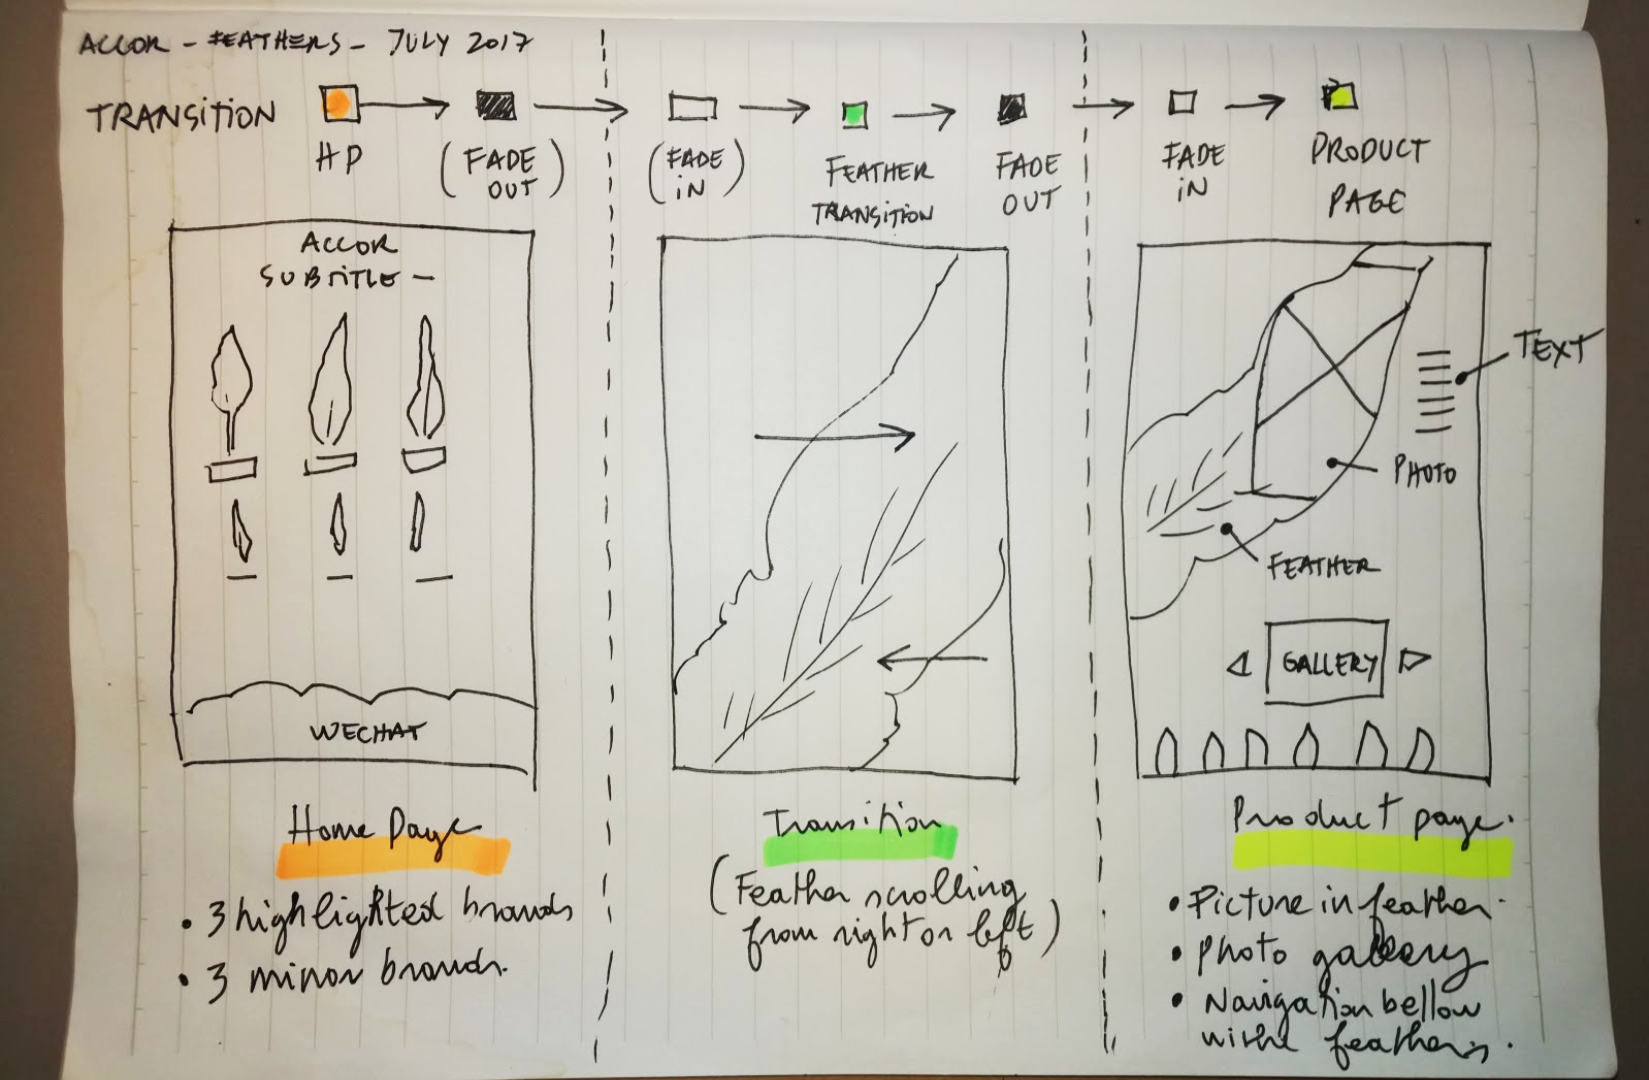 ACCOR - FEATHERS - JULY 2017
TRANSITION
HP
(FADE OUT)
(FADE IN)
FEATHER TRANSITION
FADE OUT
FADE IN
PRODUCT PAGE
ACCOR
SUBTITLE -
WECHAT
TEXT
PHOTO
FEATHER
GALLERY
Home Page
• 3 highlighted brands
• 3 minor brands.
Transition
(Feather scrolling
from right or left)
Product page.
• Picture in feather.
• Photo gallery
• Navigation bellow
withe feathers.